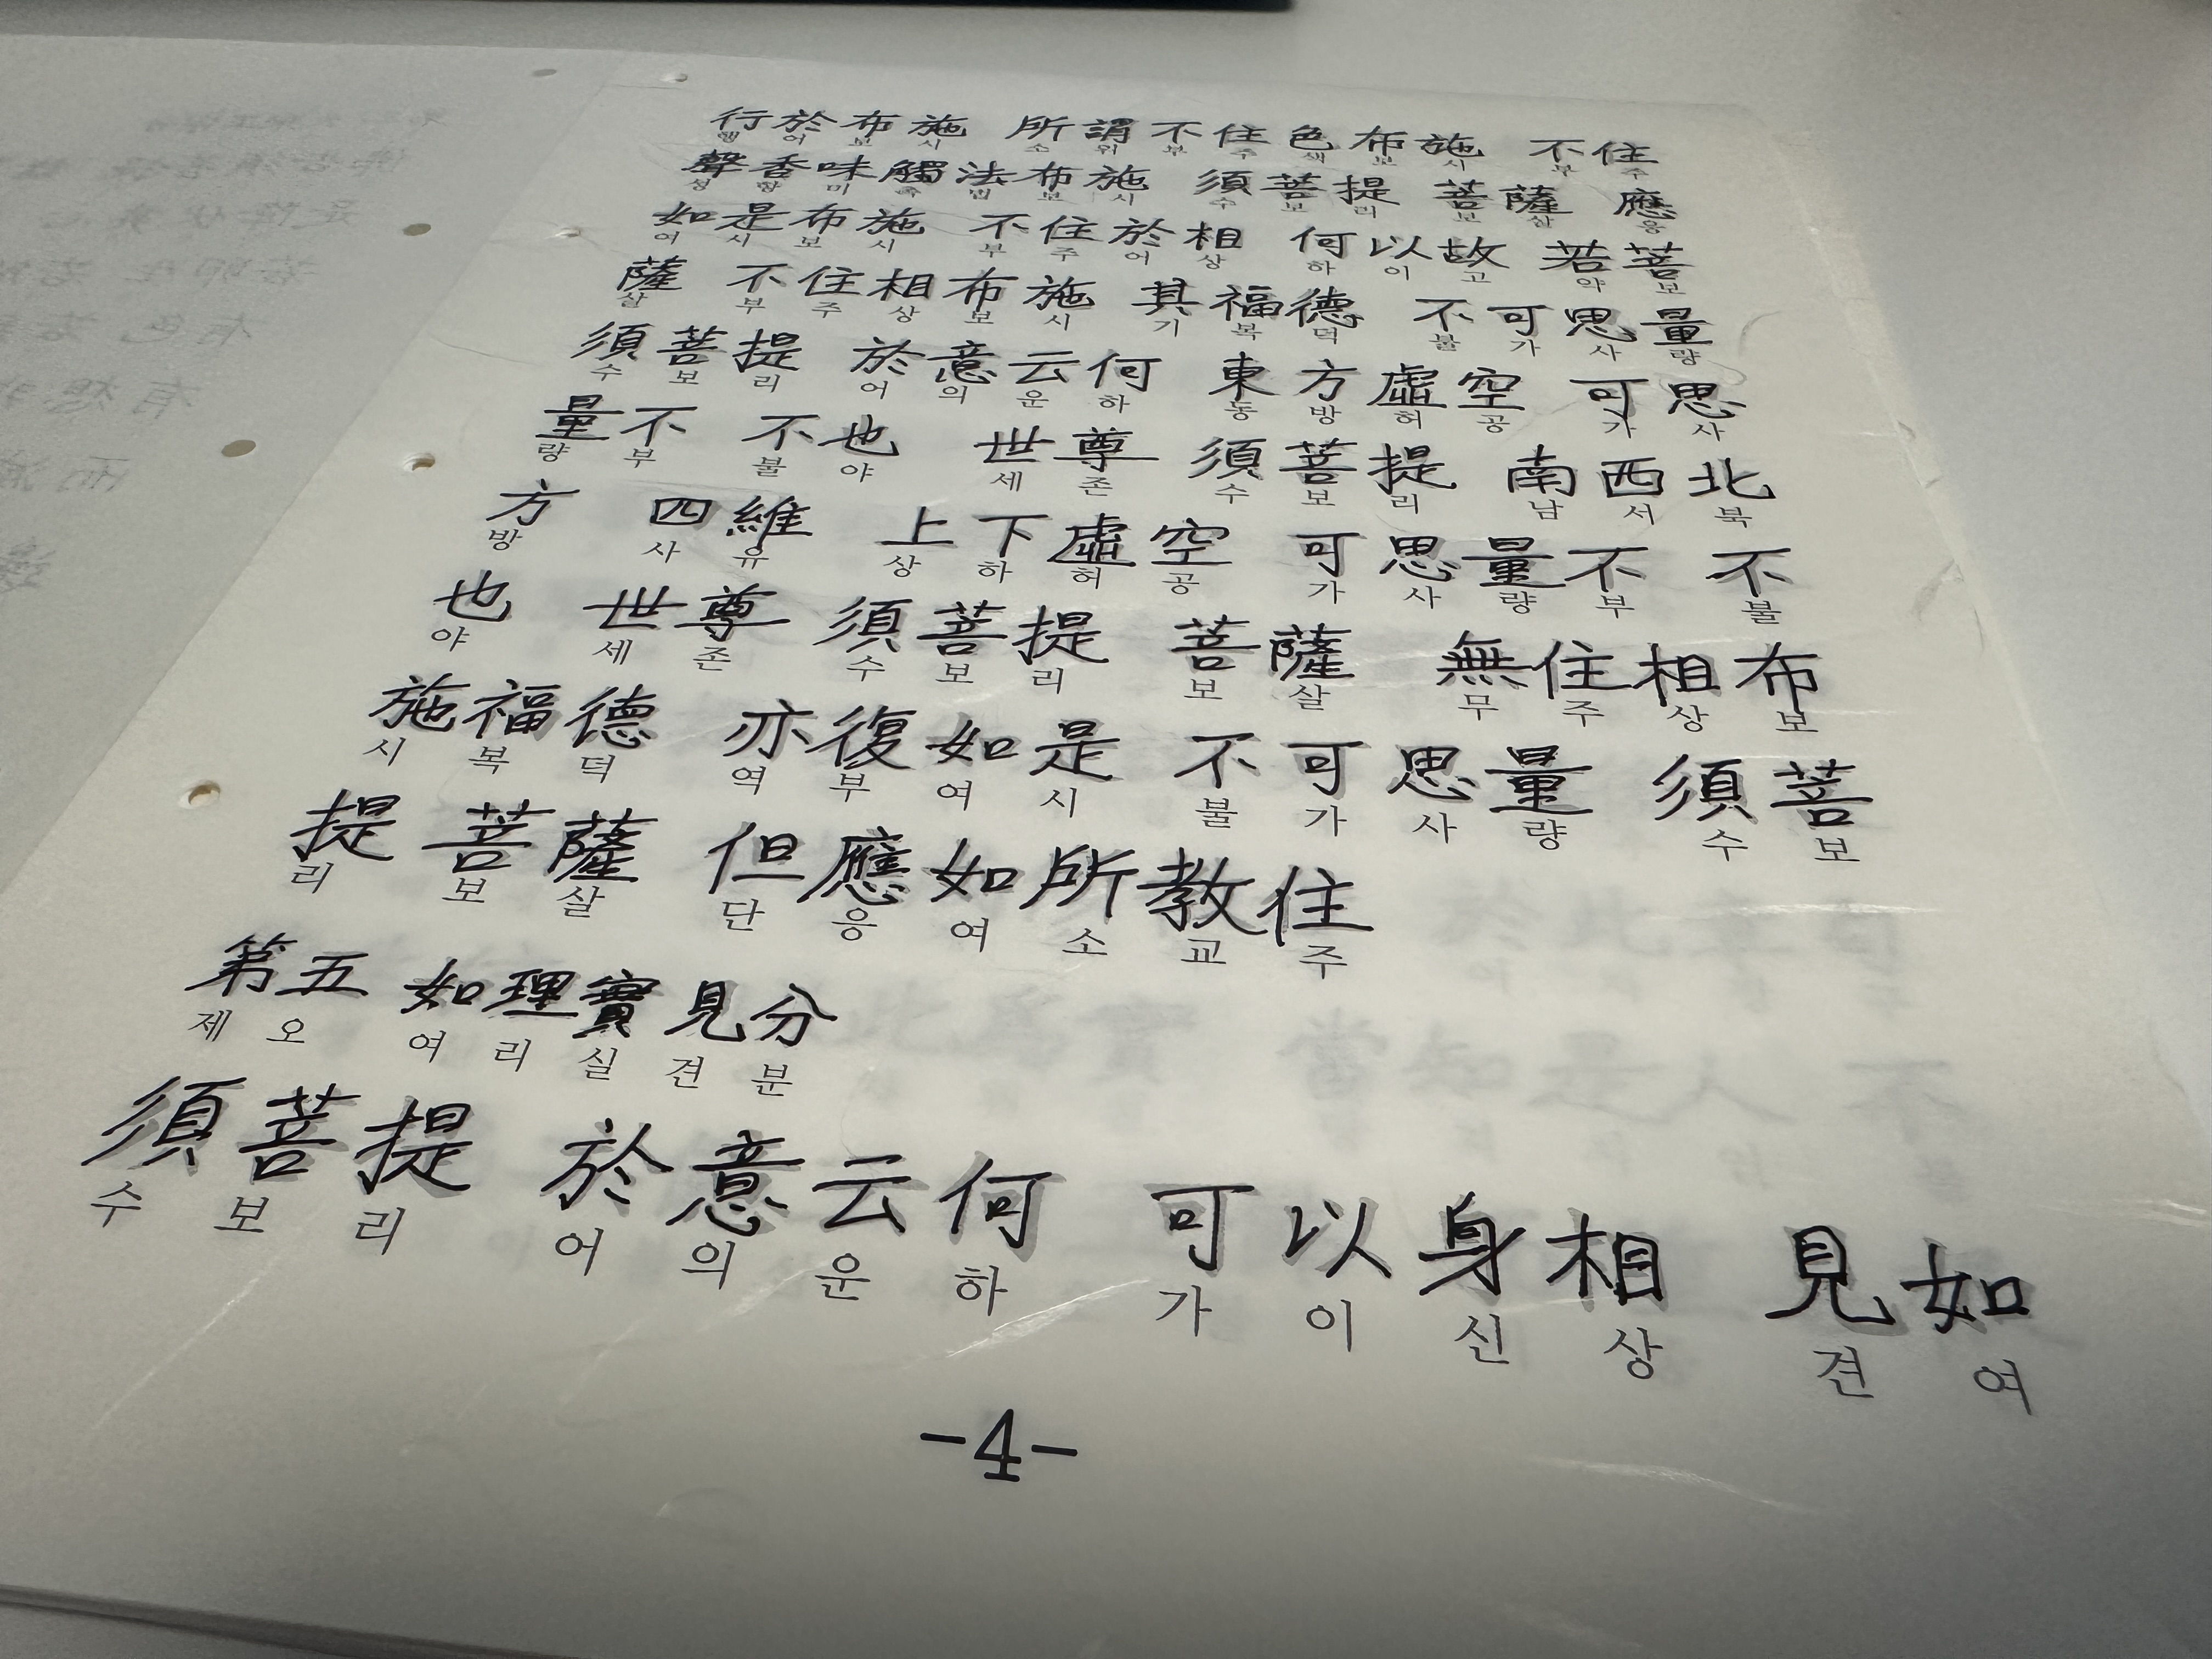 行於布施 所謂不住色布施 不住
행어보시 소위부주색보시 부주
聲香味觸法布施 須菩提 菩薩 應
성향미촉법보시 수보리 보살 응
如是布施 不住於相 何以故 若菩
여시보시 부주어상 하이고 약보
薩 不住相布施 其福德 不可思量
살 부주상보시 기복덕 불가사량
須菩提 於意云何 東方虛空 可思
수보리 어의운하 동방허공 가사
量不 不也 世尊 須菩提 南西北
량부 불야 세존 수보리 남서북
方 四維 上下虛空 可思量不 不
방 사유 상하허공 가사량부 불
也 世尊 須菩提 菩薩 無住相布
야 세존 수보리 보살 무주상보
施福德 亦復如是 不可思量 須菩
시복덕 역부여시 불가사량 수보
提 菩薩 但應如所教住
리 보살 단응여소교주
第五 如理實見分
제오 여리실견분
須菩提 於意云何 可以身相 見如
수보리 어의운하 가이신상 견여
-4-